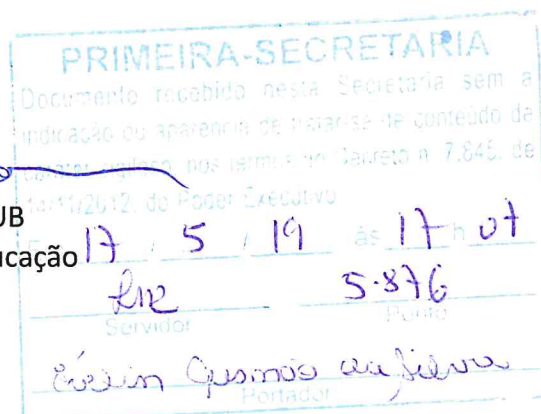 PRIMEIRA-SECRETARIA
Documento recebido nesta Secretaria sem a
indicação ou aparência de tratar-se de conteúdo de
caráter sigiloso, nos termos do Decreto n. 7.845, de
14/11/2012, do Poder Executivo
UB
ucação 17 / 5 / 19 às 17 h 07
5.876
Servidor Ponto
da Silva
Portador